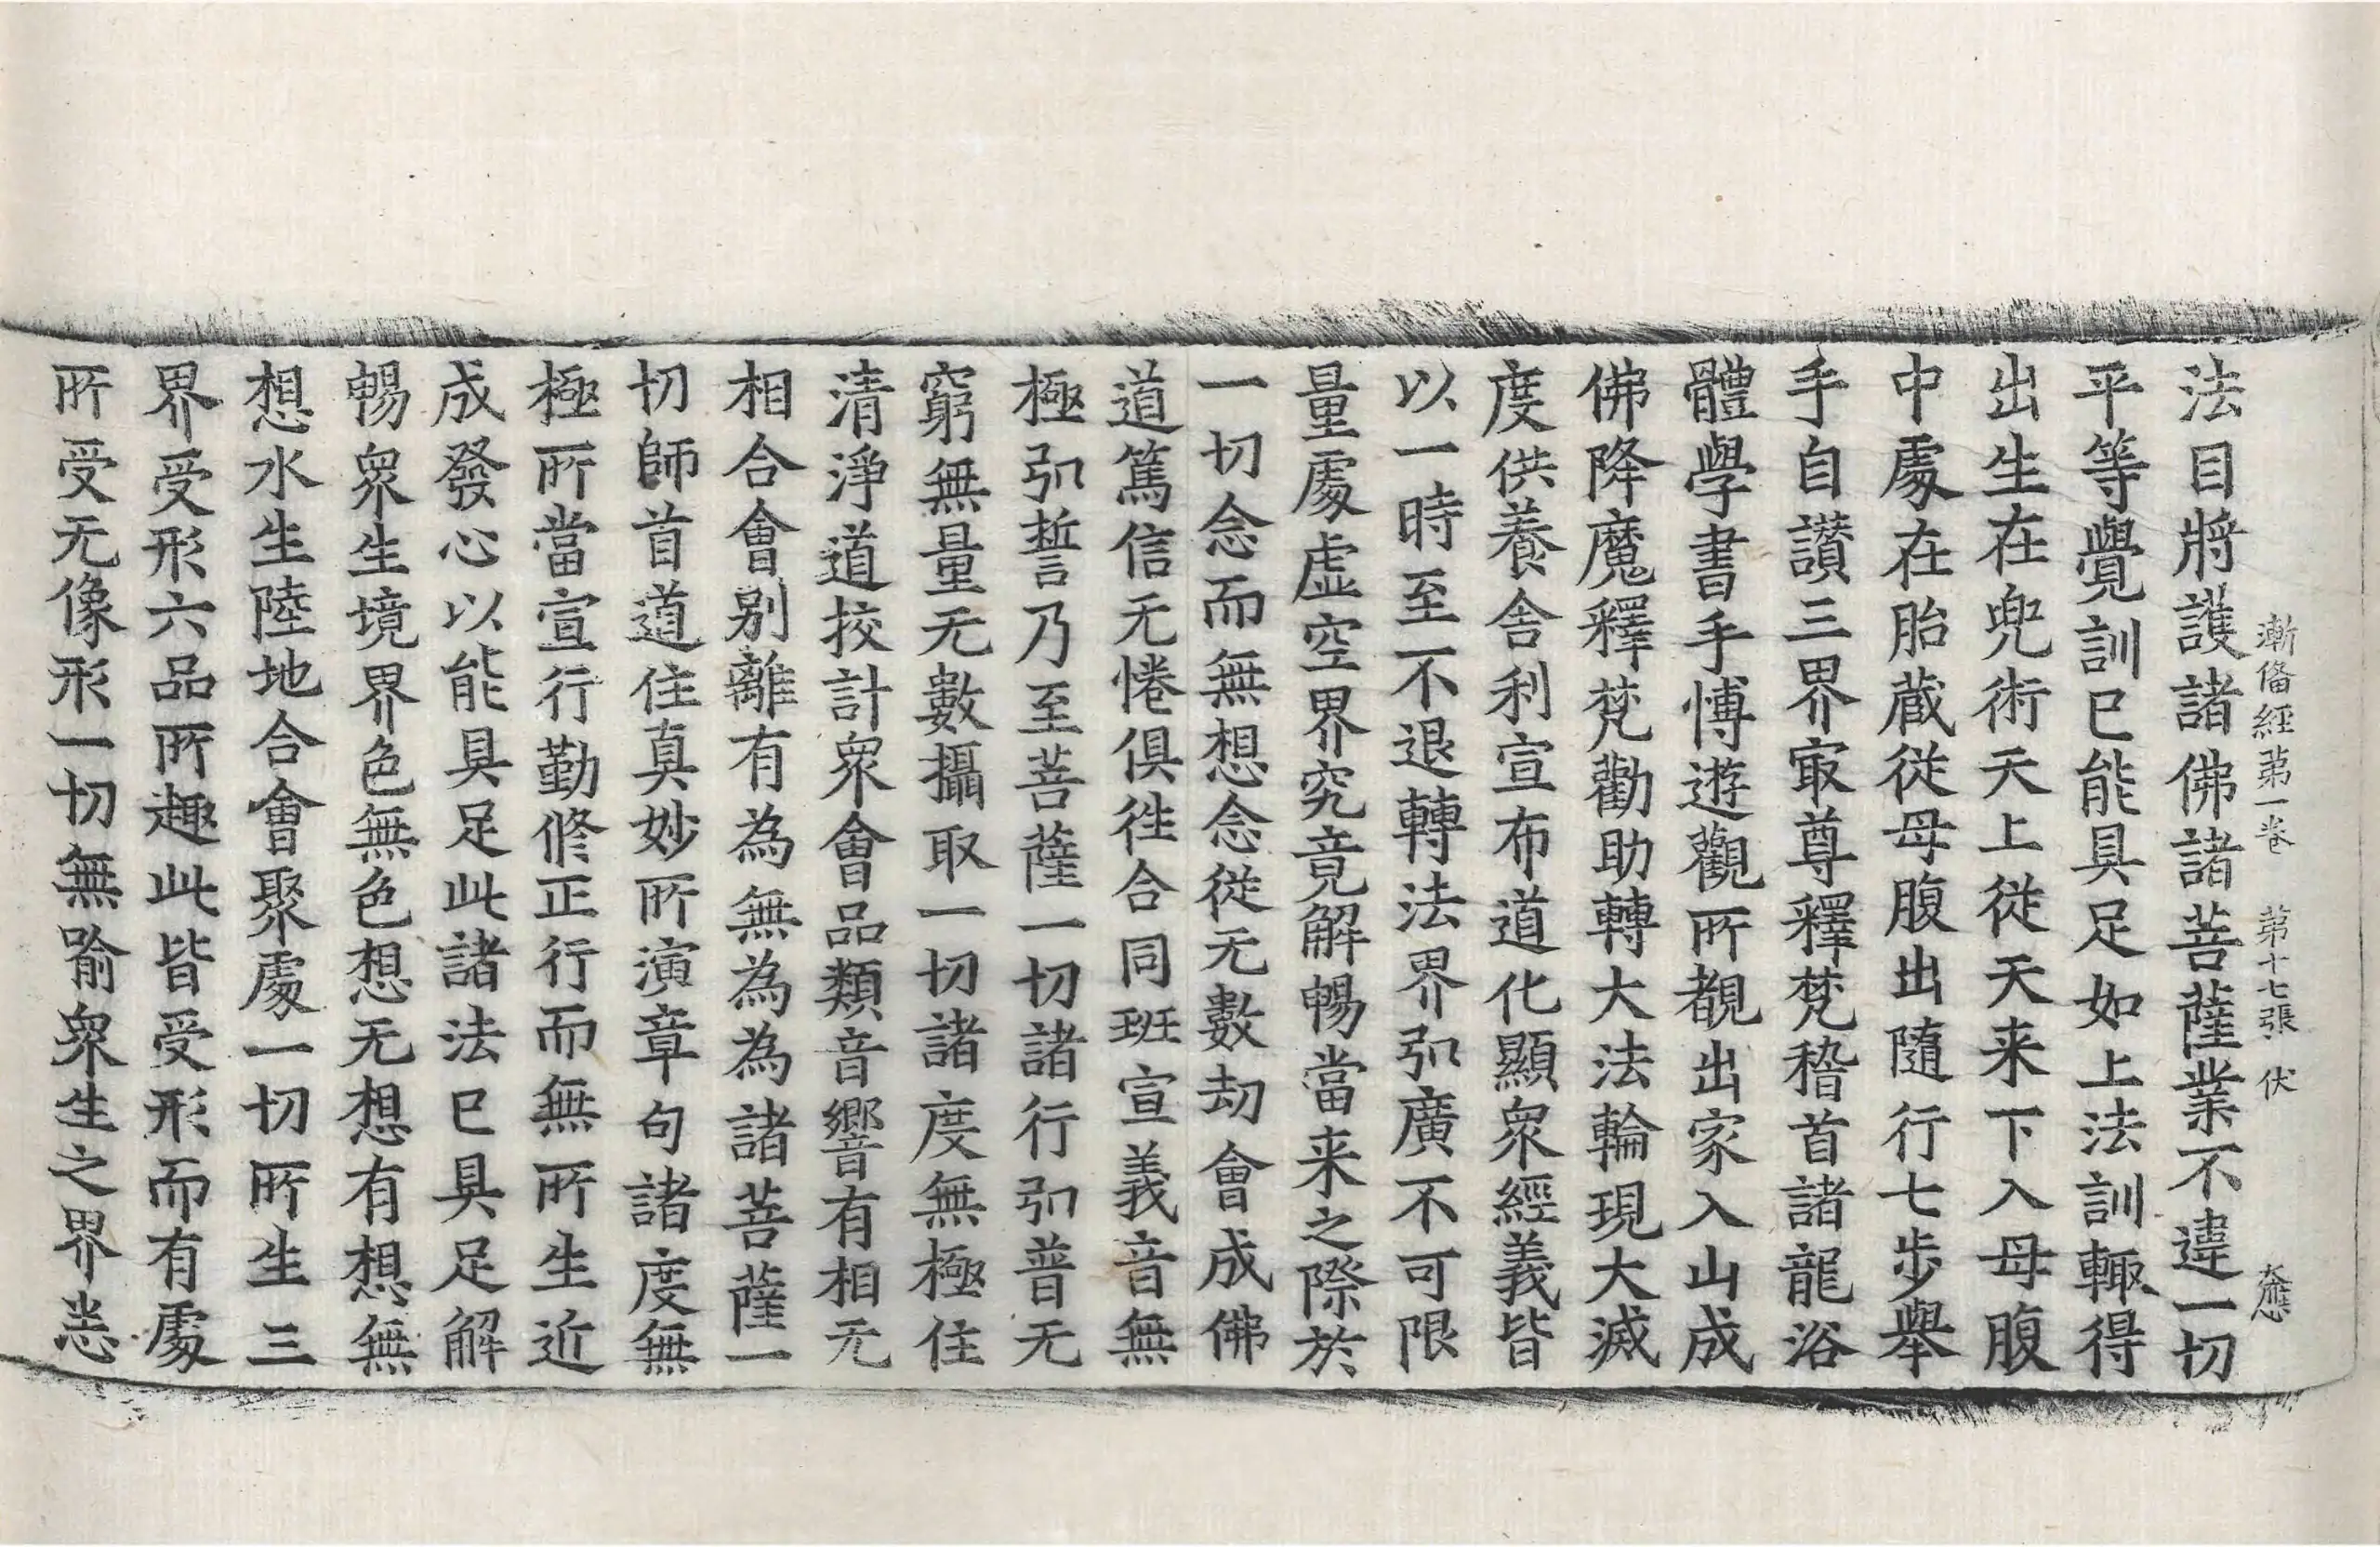 漸備經第一卷 第十七張 伏 大應
法目將護諸佛諸菩薩業不違一切
平等覺訓已能具足如上法訓輙得
出生在兜術天上從天来下入母腹
中處在胎蔵從母腹出隨行七步舉
手自讃三界㝡尊釋梵稽首諸龍浴
體學書手愽遊觀所覩出家入山成
佛降魔釋梵勸助轉大法輪現大滅
度供養舍利宣布道化顯衆經義皆
以一時至不退轉法界弘廣不可限
量處虚空界究竟解暢當来之際於
一切念而無想念從无數劫會成佛
道篤信无惓俱徃合同班宣義音無
極弘誓乃至菩薩一切諸行弘普无
窮無量无數攝取一切諸度無極住
清淨道挍計衆會品類音響有相无
相合會别離有為無為為諸菩薩一
切師首道住真妙所演章句諸度無
極所當宣行勤修正行而無所生近
成發心以能具足此諸法已具足解
暢衆生境界色無色想无想有想無
想水生陸地合會聚處一切所生三
界受形六品所趣此皆受形而有處
所受无像形一切無喻衆生之界悉